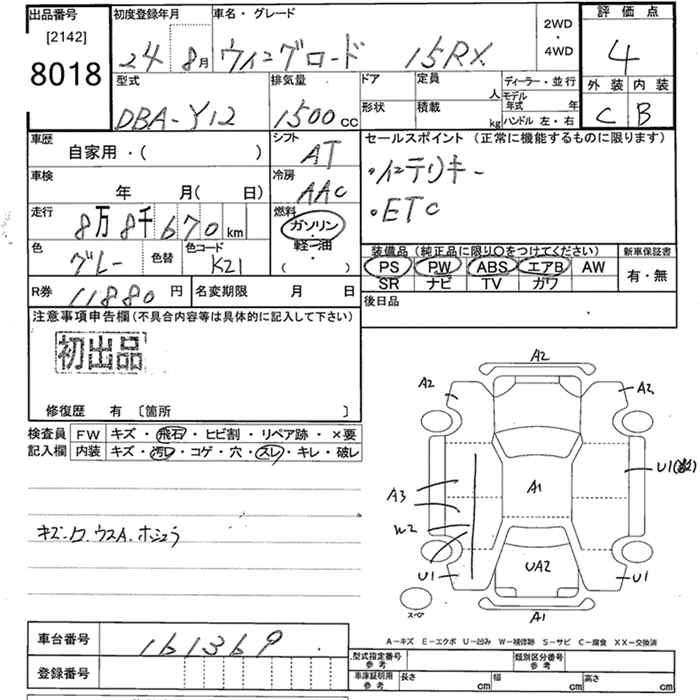 出品番号 初度登録年月 車名・グレード 2WD・4WD 評価点
[2142]
8018 24 8月 ウィングロード 15RX 4
型式 排気量 ドア 定員 人 ディーラー・並行 外装 内装
DBA-Y12 1500cc 形状 積載 kg モデル年式 年 C B
ハンドル 左・右
車歴 シフト セールスポイント (正常に機能するものに限ります)
自家用・( ) AT ・インテリキー
車検 冷房 ・ETC
年 月( 日) AAC
走行 燃料
8万8千670km ガソリン
色 色替 色コード 軽油 装備品 (純正品に限り○をつけてください) 新車保証書
グレー K21 ( ) PS PW ABS エアB AW 有・無
SR ナビ TV カワ
R券 11880円 名変期限 月 日 後日品
注意事項申告欄(不具合内容等は具体的に記入して下さい)
初出品
修復歴 有 〔箇所 〕
検査員 FW キズ・飛石・ヒビ割・リペア跡・×要
記入欄 内装 キズ・汚レ・コゲ・穴・スレ・キレ・破レ
A2
A2 A2
A3 A1 U1
W2
U1 UA2 U1
A1
スペ
A-キズ E-エクボ U-凹み W-補修跡 S-サビ C-腐食 XX-交換済
車台番号 161369
登録番号
型式指定番号 参考 類別区分番号 参考
車庫証明用 参考 長さ cm 幅 cm 高さ cm